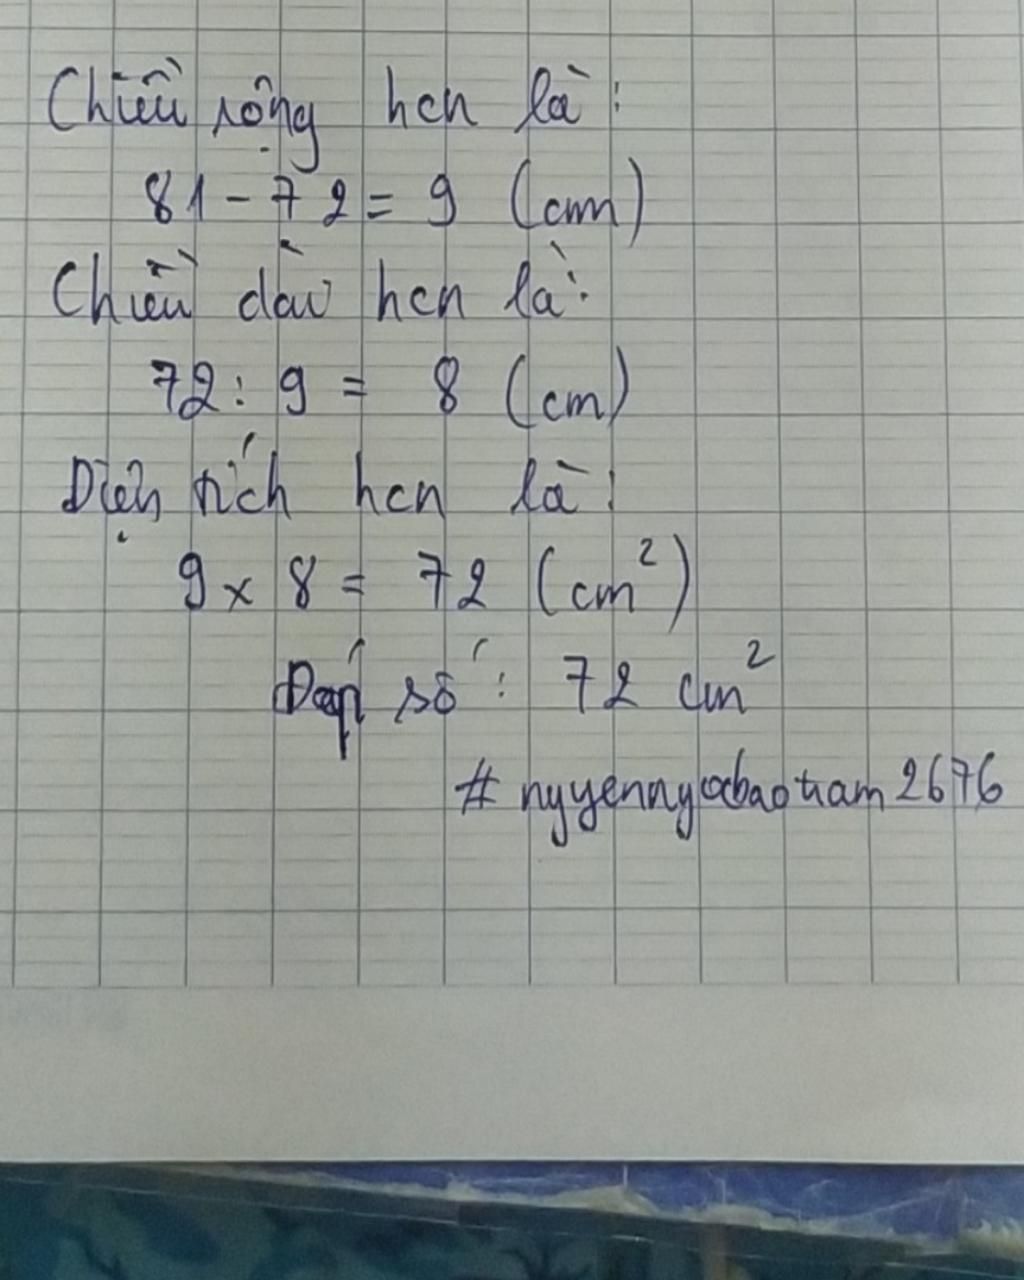 Chiều rộng hcn là:
81 - 72 = 9 (cm)
Chiều dài hcn là:
72 : 9 = 8 (cm)
Diện tích hcn là:
9 x 8 = 72 (cm²)
Đáp số : 72 cm²
# nguyenngocbaotram2676